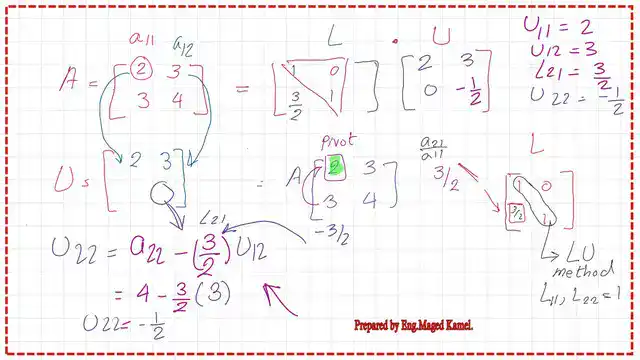 a11 a12
A = [ 2 3 = [ 1 0 ] . [ 2 3
3 4 ] 3/2 1 0 -1/2 ]
L U
U11 = 2
U12 = 3
L21 = 3/2
U22 = -1/2
U = [ 2 3 ]
= A [ 2 3
3 4 ]
pivot
-3/2
a21/a11
3/2
L
[ 1 0
3/2 1 ]
L21
U22 = a22 - (3/2) U12
= 4 - 3/2 (3)
U22 = -1/2
LU
method
L11, L22 = 1
Prepared by Eng.Maged Kamel.